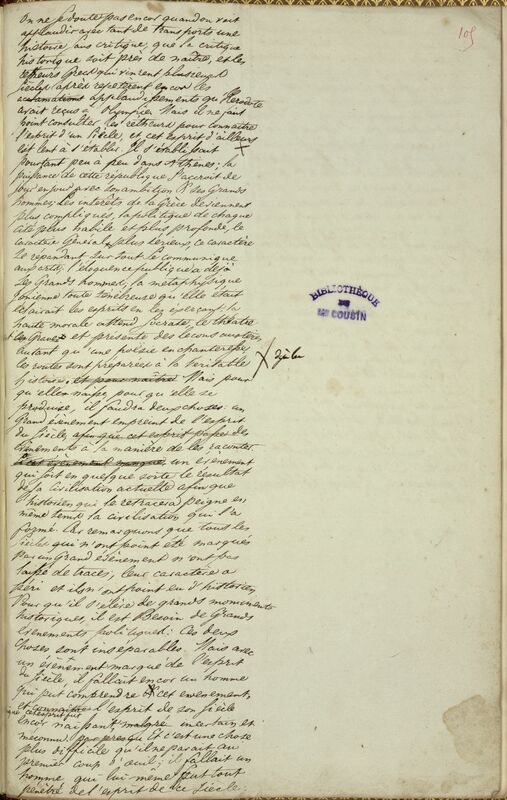 On ne se doute pas encor quand on voit
applaudir avec tant de transports une
histoire, sans critique, que la critique
historique soit près de naître, et les
rheteurs Grecs qui vinrent plusieurs
siecles après repeterent encor les
acclamations applaudissements qu'Herodote
avait reçus à Olympie. Mais il ne faut
point consulter les retheurs pour connaître
l'esprit d'un siècle, et cet esprit d'ailleurs
est lent à s'etablir. Il s'établissait
pourtant peu à peu dans Athènes; la
puissance de cette république s'accroit de
jour en jour avec son ambition & ses Grands
hommes; les intérêts de la Grèce deviennent
plus compliqués, la politique de chaque
cité plus habile et plus profonde, le
caractère Général plus serieux, ce caractère
se répandant sur tout se communique
aux arts; l'éloquence publique a déjà
ses Grands hommes, la metaphysique
ionienne toute tenebreuse qu'elle était
eclairait les esprits en les exerçant, la
haute morale attend Socrate, le théâtre
est Grave et présente des leçons austères
autant qu'une poésie enchanteresse,
les routes sont preparées à la veritable
histoire, et pour naître Mais pour
qu'elle naisse, pour qu'elle se
produise, il faudra deux choses: un
Grand evenement empreint de l'esprit
du siècle, afin que cet esprit passe des
évènements à la manière de les raconter.
un évènement
qui soit en quelque sorte le resultat
de la civilisation actuelle afin que
l'historien qui le retracera peigne en
même tems la civilisation qui l'a
formé. Car remarquons que tous les
siecles qui n'ont point été marqués
par un Grand évènement n'ont pas
laissé de traces, leur caractère a
péri et ils n'ont point eu d'historien.
Pour qu'il s'elève de grands monuments
historiques, il est besoin de Grands
évènements politiques: Ces deux
choses sont inseparables. Mais avec
un évènement marqué de l'esprit
du siècle, il fallait encor un homme
qui put comprendre & cet evenement
et connaître l'esprit de son siècle
que cet esprit fut
encor naissant, malgre incertain et
meconnu. presque Et c'est une chose
plus difficile qu'il ne parait au
premier coup d'oeuil; il fallait un
homme qui lui même fut tout
pénétré de l'esprit de ce siecle:
105
BIBLIOTHÈQUE
DE
Mr COUSIN